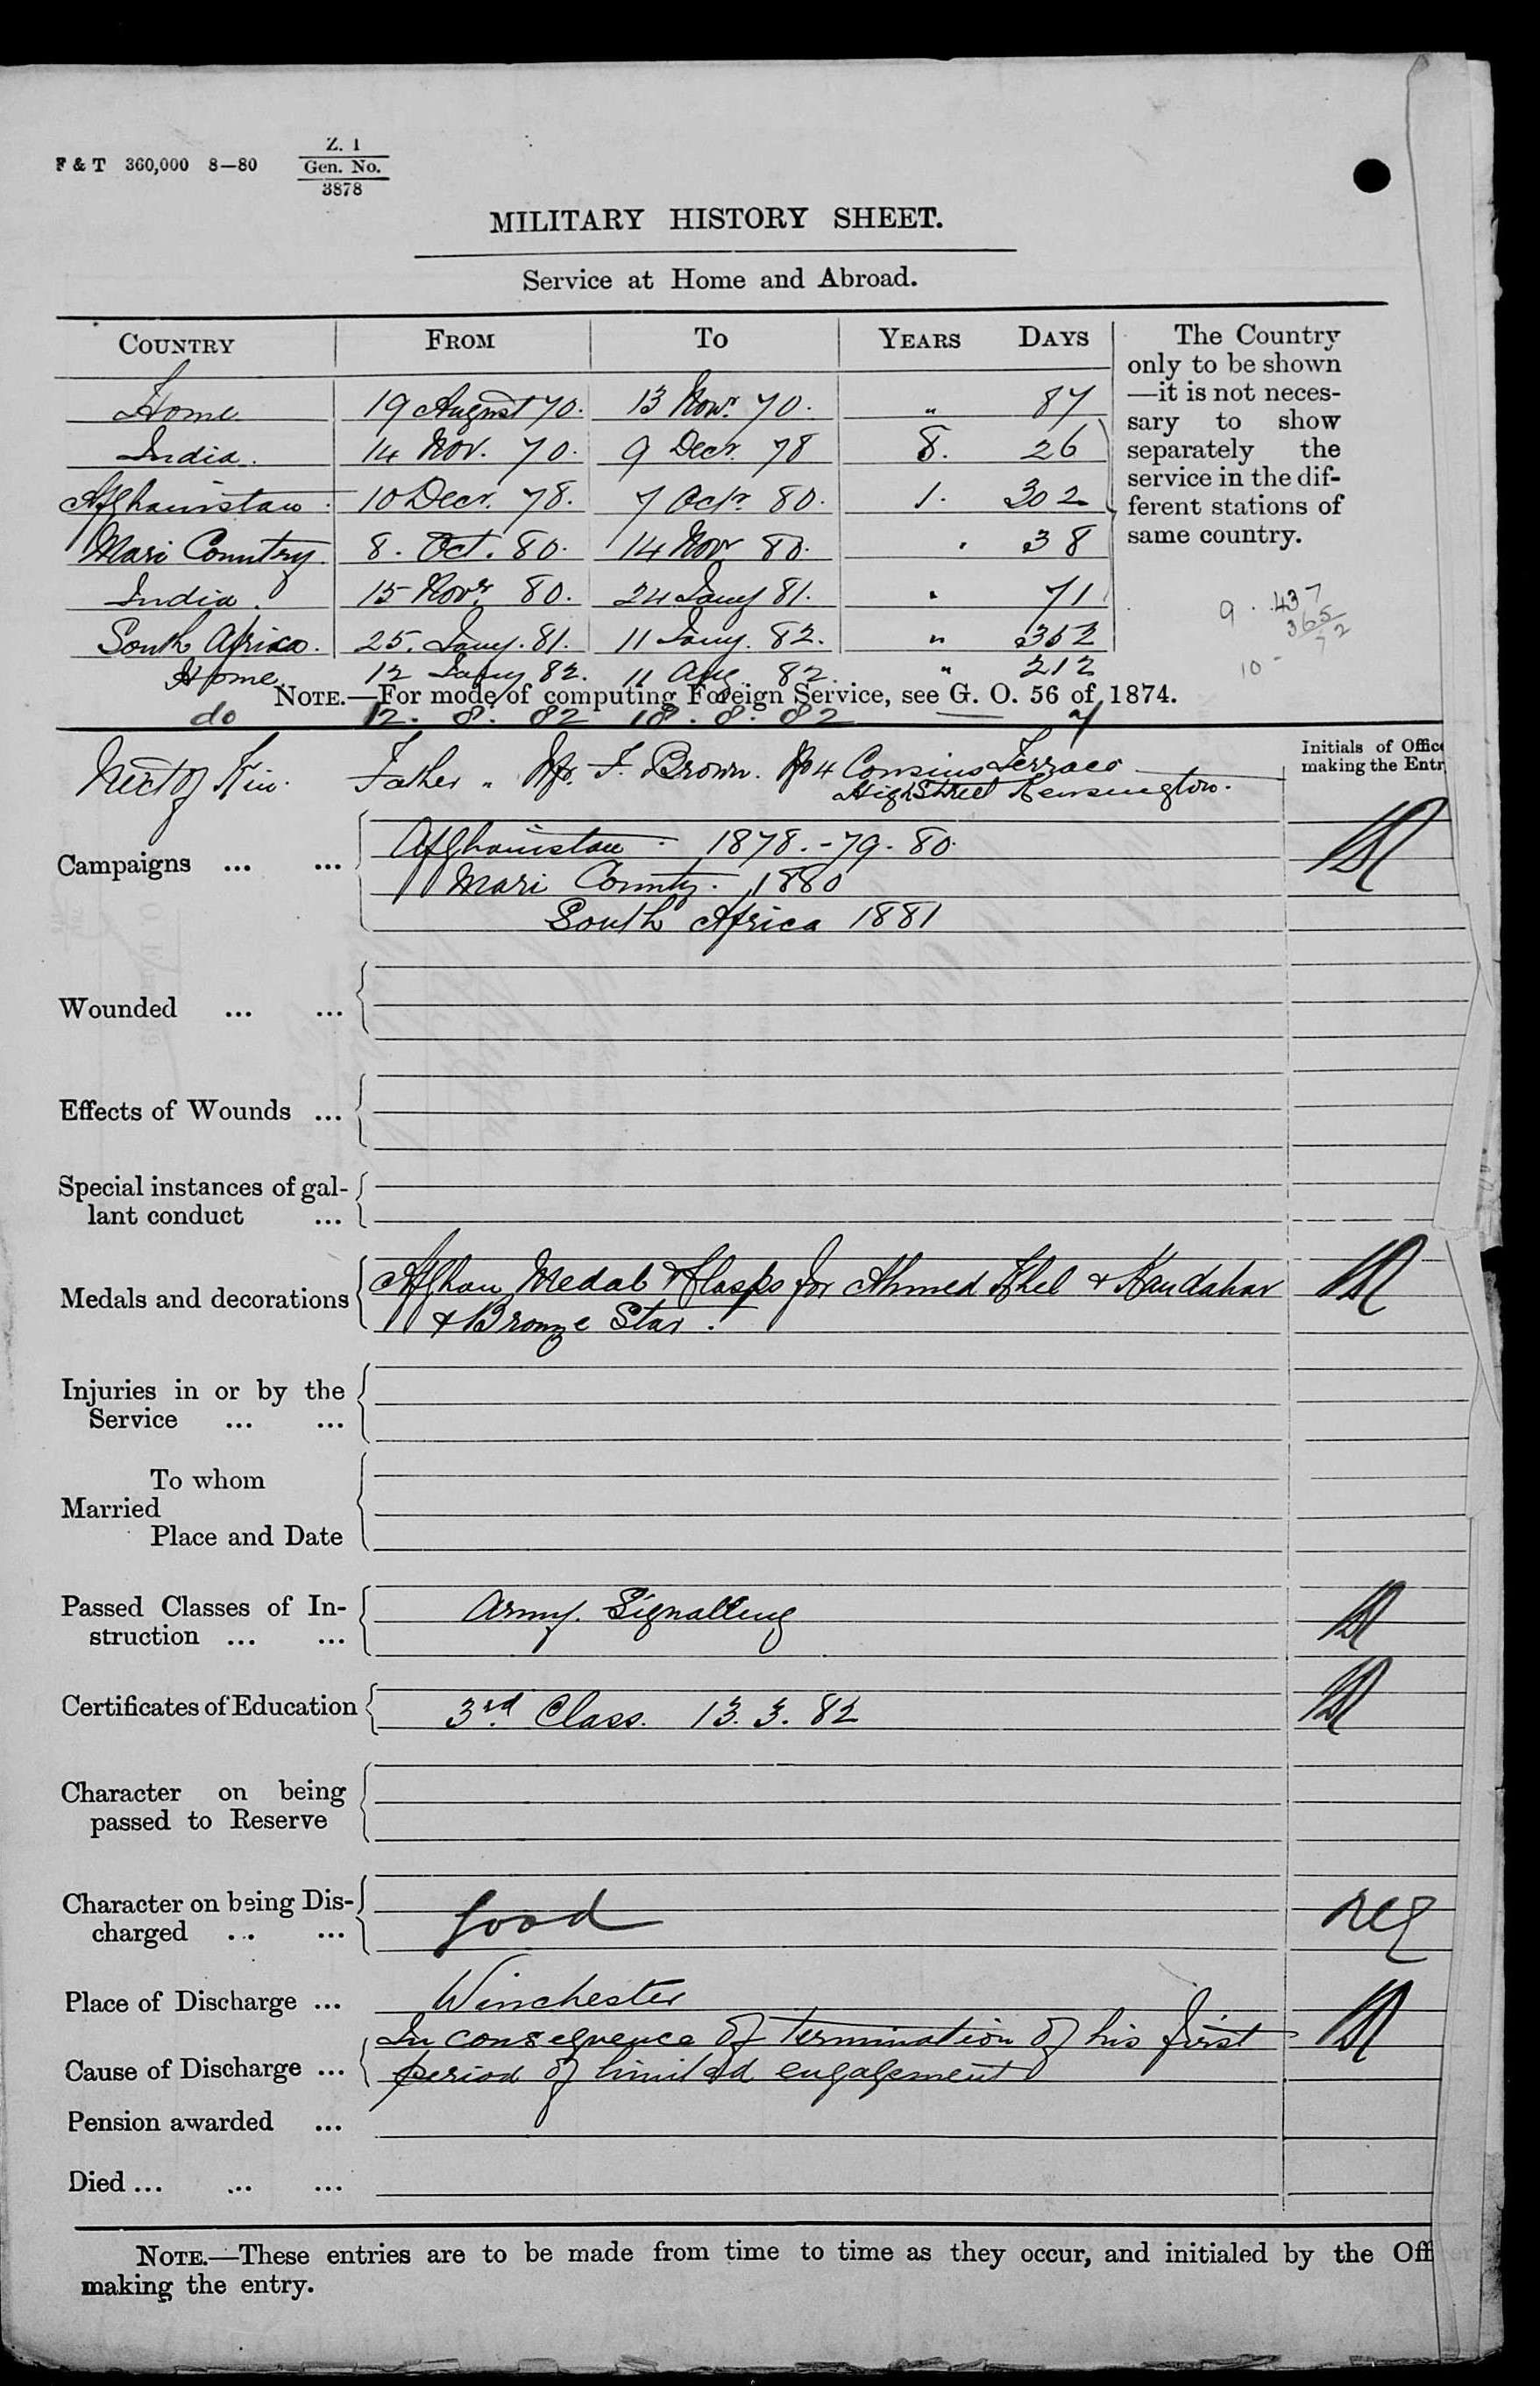 F & T 360,000 8—80
Z. 1
Gen. No.
3878
MILITARY HISTORY SHEET.
Service at Home and Abroad.
COUNTRY FROM TO YEARS DAYS
The Country
only to be shown
—it is not neces-
sary to show
separately the
service in the dif-
ferent stations of
same country.
Home 19 August 70. 13 Novr. 70. " 87
India. 14 Nov. 70. 9 Decr. 78 8. 26
Afghanistan. 10 Decr. 78. 7 Octr. 80. 1. 302
Mari Country. 8. Oct. 80. 14 Nov 80. . 38
India. 15 Novr. 80. 24 Jany 81. " 71
9 . 437
365
72
10 -
South Africa. 25. Jany. 81. 11 Jany. 82. " 352
Home. 12 Jany 82. 11 Aug. 82. " 212
NOTE.—For mode of computing Foreign Service, see G. O. 56 of 1874.
do 12. 8. 82 18. 8. 82 — 7
Initials of Offic
making the Entr
Next of Kin. Father " Mr. F. Brown. No 4 Cousins Terrace
High Street Kensington.
Campaigns ... ...
Afghanistan. 1878.-79.-80.
Mari County. 1880
South Africa 1881
Wounded ... ...
Effects of Wounds ...
Special instances of gal-
lant conduct ...
Medals and decorations
Afghan Medal & Clasps for Ahmed Khel & Kandahar
& Bronze Star.
Injuries in or by the
Service ... ...
To whom
Married
Place and Date
Passed Classes of In-
struction ... ...
Army. Signalling
Certificates of Education
3rd Class. 13. 3. 82
Character on being
passed to Reserve
Character on being Dis-
charged ... ...
Good
Place of Discharge ... Winchester
Cause of Discharge ...
In consequence of termination of his first
period of limited engagement
Pension awarded ...
Died ... ... ...
NOTE.—These entries are to be made from time to time as they occur, and initialed by the Off
making the entry.